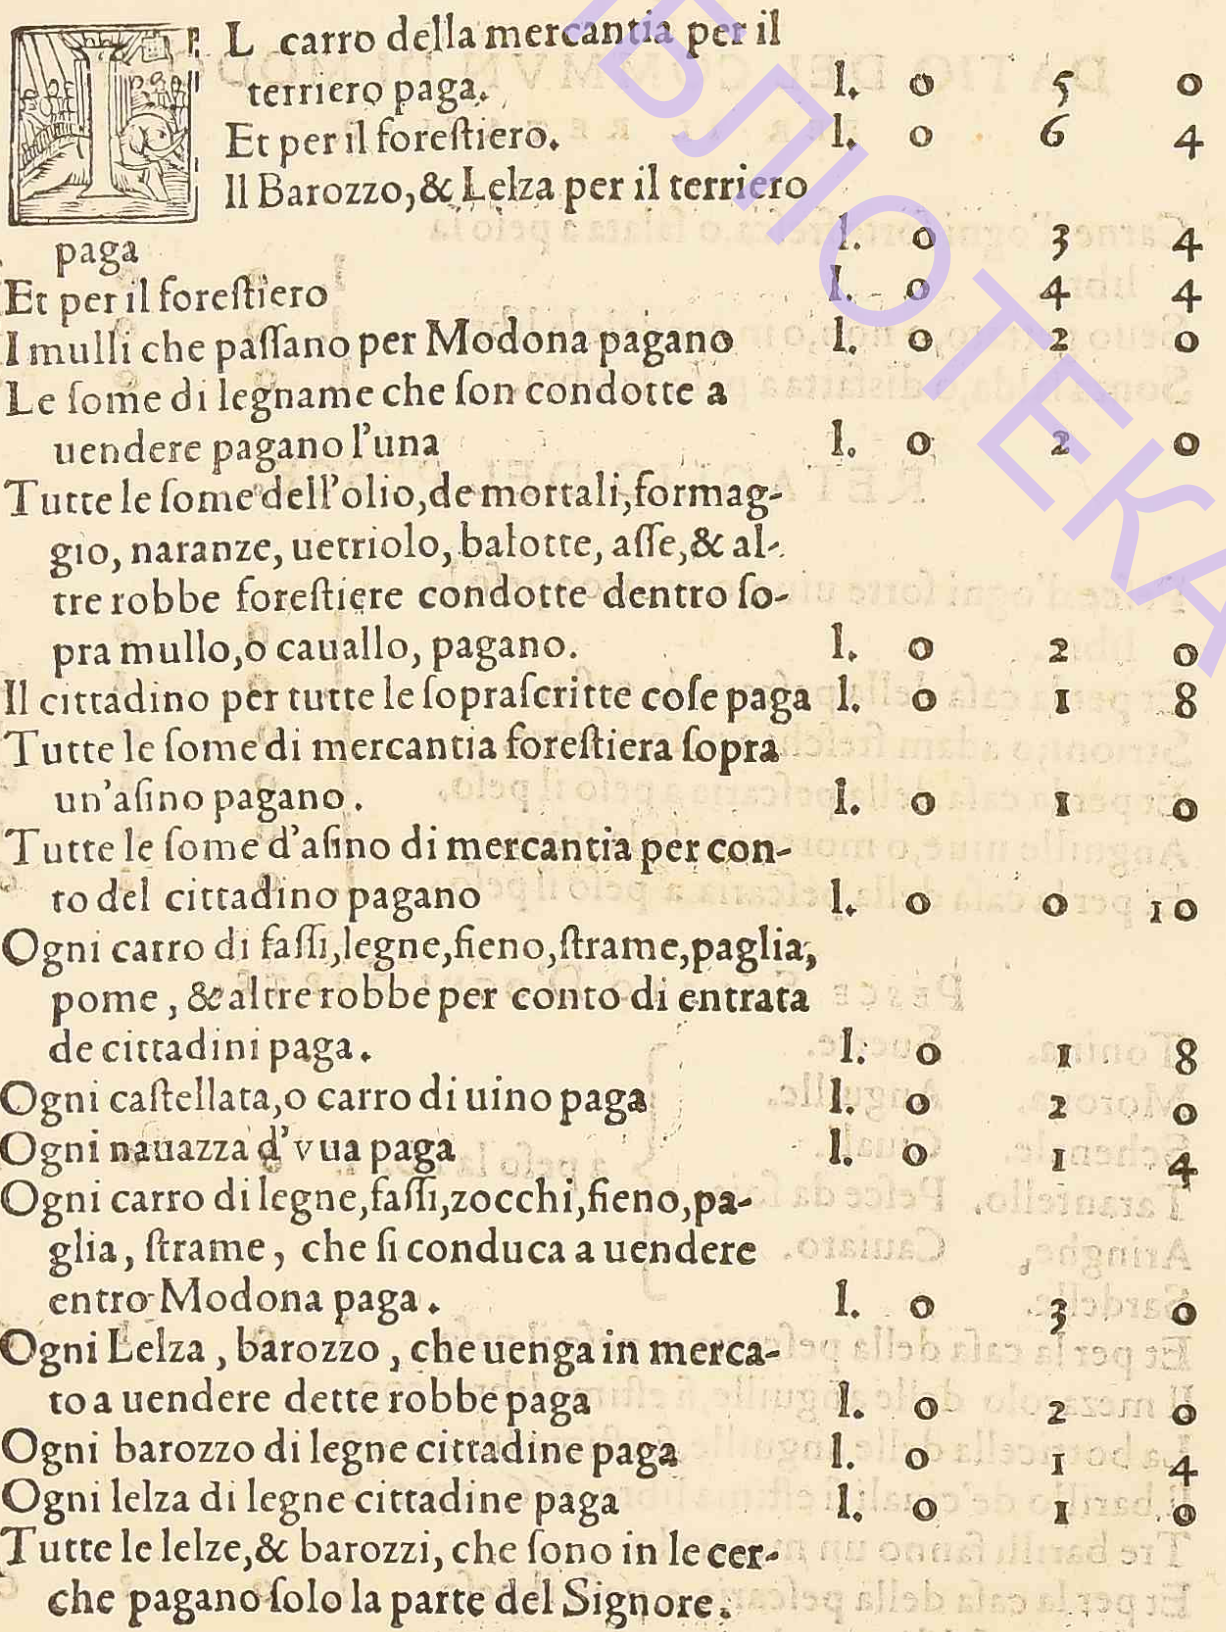 IL carro della mercantia per il
terriero paga. l. 0 5 0
Et per il forestiero. l. 0 6 4
Il Barozzo, & Lelza per il terriero
paga l. 0 3 4
Et per il forestiero l. 0 4 4
I mulli che passano per Modona pagano l. 0 2 0
Le some di legname che son condotte a
uendere pagano l'una l. 0 2 0
Tutte le some dell'olio, de mortali, formag-
gio, naranze, uetriolo, balotte, asse, & al-
tre robbe forestiere condotte dentro so-
pra mullo, o cauallo, pagano. l. 0 2 0
Il cittadino per tutte le soprascritte cose paga l. 0 1 8
Tutte le some di mercantia forestiera sopra
un'asino pagano. l. 0 1 0
Tutte le some d'asino di mercantia per con-
to del cittadino pagano l. 0 0 10
Ogni carro di fassi, legne, fieno, strame, paglia,
pome, & altre robbe per conto di entrata
de cittadini paga. l. 0 1 8
Ogni castellata, o carro di uino paga l. 0 2 0
Ogni nauazza d'vua paga l. 0 1 4
Ogni carro di legne, fassi, zocchi, fieno, pa-
glia, strame, che si conduca a uendere
entro Modona paga. l. 0 3 0
Ogni Lelza, barozzo, che uenga in merca-
to a uendere dette robbe paga l. 0 2 0
Ogni barozzo di legne cittadine paga l. 0 1 4
Ogni lelza di legne cittadine paga l. 0 1 0
Tutte le lelze, & barozzi, che sono in le cer-
che pagano solo la parte del Signore.
БЛІОТЕКА